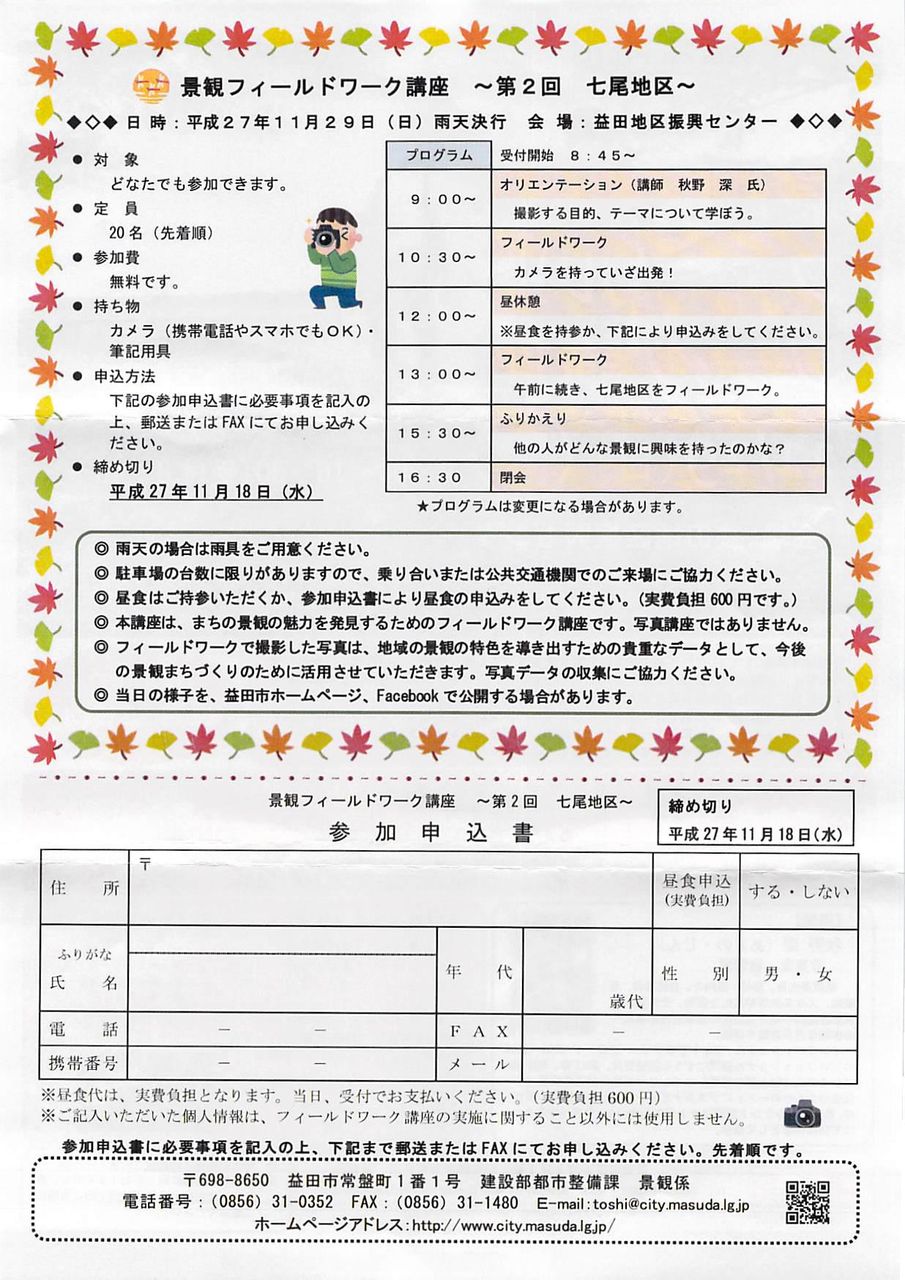 景観フィールドワーク講座　～第２回　七尾地区～
◆◇◆日 時：平成２７年１１月２９日（日）雨天決行　会 場：益田地区振興センター ◆◇◆
● 対　象
どなたでも参加できます。
● 定　員
20名（先着順）
● 参加費
無料です。
● 持ち物
カメラ（携帯電話やスマホでもＯＫ）・
筆記用具
● 申込方法
下記の参加申込書に必要事項を記入の
上、郵送またはFAXにてお申し込みく
ださい。
● 締め切り
平成27年11月18日（水）
プログラム　受付開始　８：４５～
９：００～　オリエンテーション（講師　秋野　深　氏）
撮影する目的、テーマについて学ぼう。
１０：３０～　フィールドワーク
カメラを持っていざ出発！
１２：００～　昼休憩
※昼食を持参か、下記により申込みをしてください。
１３：００～　フィールドワーク
午前に続き、七尾地区をフィールドワーク。
１５：３０～　ふりかえり
他の人がどんな景観に興味を持ったのかな？
１６：３０　閉会
★プログラムは変更になる場合があります。
◎ 雨天の場合は雨具をご用意ください。
◎ 駐車場の台数に限りがありますので、乗り合いまたは公共交通機関でのご来場にご協力ください。
◎ 昼食はご持参いただくか、参加申込書により昼食の申込みをしてください。（実費負担600円です。）
◎ 本講座は、まちの景観の魅力を発見するためのフィールドワーク講座です。写真講座ではありません。
◎ フィールドワークで撮影した写真は、地域の景観の特色を導き出すための貴重なデータとして、今後
の景観まちづくりのために活用させていただきます。写真データの収集にご協力ください。
◎ 当日の様子を、益田市ホームページ、Facebookで公開する場合があります。
景観フィールドワーク講座　～第２回　七尾地区～
参　加　申　込　書
締め切り
平成27年11月18日（水）
住　所　〒　昼食申込（実費負担）　する・しない
ふりがな
氏　名　年　代　歳代　性　別　男・女
電　話　－　－　ＦＡＸ　－　－
携帯番号　－　－　メール
※昼食代は、実費負担となります。当日、受付でお支払いください。（実費負担600円）
※ご記入いただいた個人情報は、フィールドワーク講座の実施に関すること以外には使用しません。
参加申込書に必要事項を記入の上、下記まで郵送またはFAXにてお申し込みください。先着順です。
〒698-8650　益田市常盤町１番１号　建設部都市整備課　景観係
電話番号：（0856）31-0352　FAX：（0856）31-1480　E-mail：toshi@city.masuda.lg.jp
ホームページアドレス：http://www.city.masuda.lg.jp/